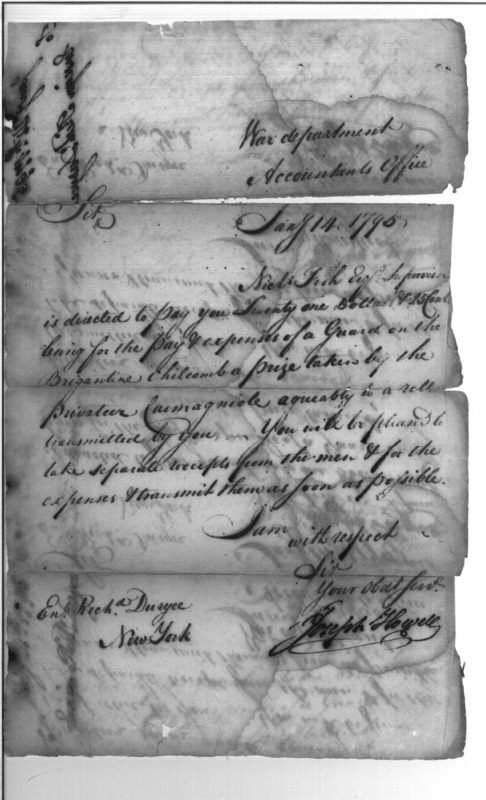 War department
Accountants Office
Sir
Jany 14. 1795
Nichs Fish Esqr Supervisor
is directed to pay you Twenty one Dollars &
being for the Pay & expenses of a Guard on the
Brigantine Chilcomb a prize taken by the
Privateer Carmagniole agreably to a roll
transmitted by you, — You will be pleased to
take separate receipts from the men & for the
expenses & transmit them as soon as possible.
I am
with respect
Sir
Your Obdt Servt
Joseph Howell
Ens. Richd Duryee
New York